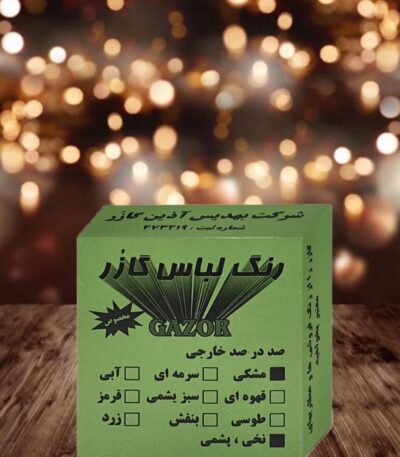 شرکت بهدیس آذین گازُر
شماره ثبت : ۴۷۳۲۱۹
رنگ لباس گازُر
GAZOR
مخصوص
صد در صد خارجی
مشکی سرمه ای آبی
قهوه ای سبز یشمی قرمز
طوسی بنفش زرد
نخی ، پشمی